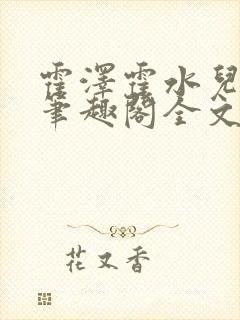 霍澤霍水兒
筆趣閣全文
花又香